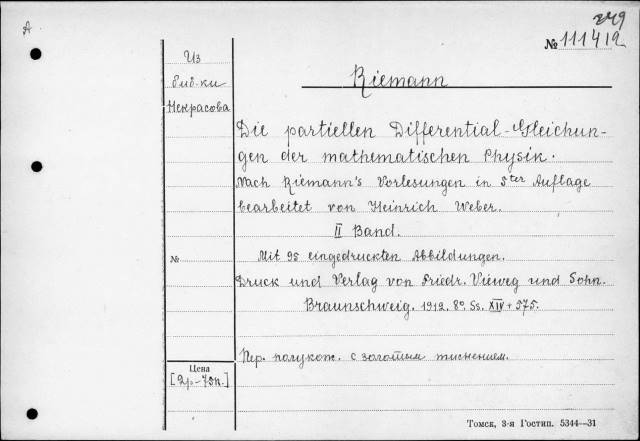 А
249
№ 111412
Из
биб-ки
Некрасова
Riemann
Die partiellen Differential-Gleichun-
gen der mathematischen Physik.
Nach Riemann's Vorlesungen in 5ter Auflage
bearbeitet von Heinrich Weber.
II Band.
№
Mit 95 eingedruckten Abbildungen.
Druck und Verlag von Friedr. Vieweg und Sohn.
Braunschweig. 1912. 8º. Ss. XIV + 575.
Пер. полукож. с золотым тиснением.
Цена
[2р-75к.]
Томск, 3-я Гостип. 5344—31